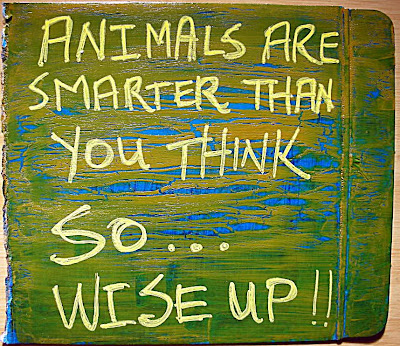 ANIMALS ARE
SMARTER THAN
YOU THINK
SO...
WISE UP!!